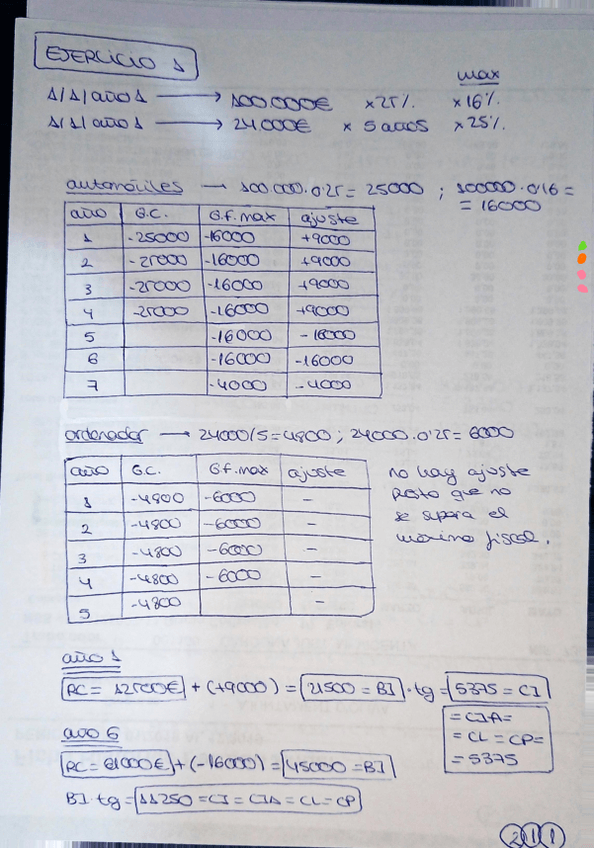 EJERCICIO 1
max
1/1/año1 → 100.000€ x25% x16%
1/1/año1 → 24.000€ x 5 años x25%
automóviles → 100.000.0'25= 25000 ; 100000.0'16=
= 16000
año G.C. G.f.max ajuste
1 -25000 -16000 +9000
2 -25000 -16000 +9000
3 -25000 -16000 +9000
4 -25000 -16000 +9000
5 -16000 -16000
6 -16000 -16000
7 -4000 -4000
ordenador → 24000/5=4800 ; 24000.0'25= 6000
año G.C. G.f.max ajuste
1 -4800 -6000 -
2 -4800 -6000 -
3 -4800 -6000 -
4 -4800 -6000 -
5 -4800 -
no hay ajuste
puesto que no
se supera el
máximo fiscal.
año 1
RC= 12500€ + (+9000) = 21500 = BI · tg = 5375 = CI
= CIA=
= CL = CP=
= 5375
año 6
RC= 61000€ + (-16000) = 45000 = BI
BI · tg = 11250 = CI = CIA = CL = CP
2 1 1